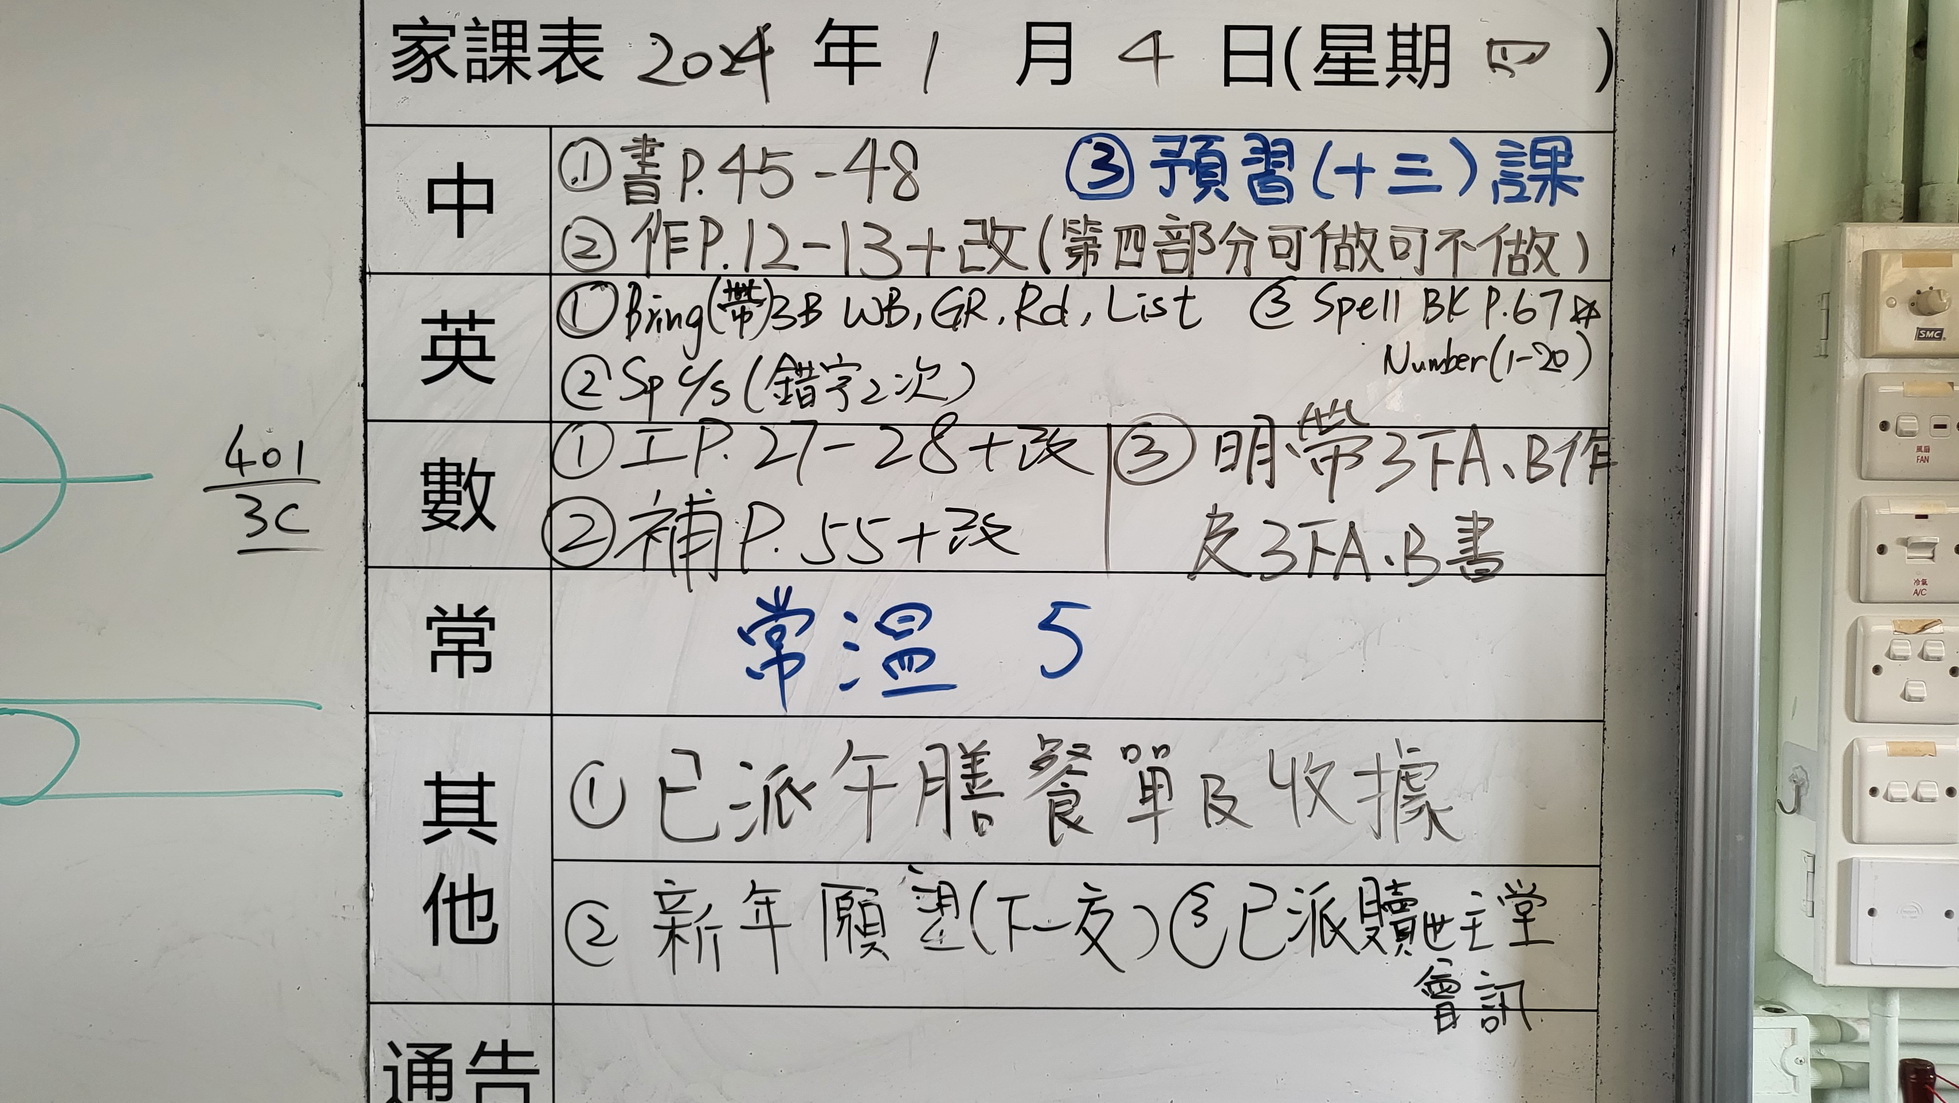 家課表 2024 年 1 月 4 日(星期 四 )
中
① 書 P. 45 - 48 ③ 預習(十三)課
② 作P. 12 - 13 + 改 (第四部分可做可不做)
英
① Bring(帶)3B WB, GR, Rd, List ③ Spell BK P.67 ☆
Number(1-20)
② Sp c/s (錯字2次)
數
① 工P. 27 - 28 + 改 ③ 明帶3下A、B作
② 補 P. 55 + 改 及3下A、B書
401
3C
常
常溫 5
其他
① 已派午膳餐單及收據
② 新年願望(下一友) ③ 已派贖世主堂
會訊
通告
SMC
風扇
FAN
冷氣
A/C